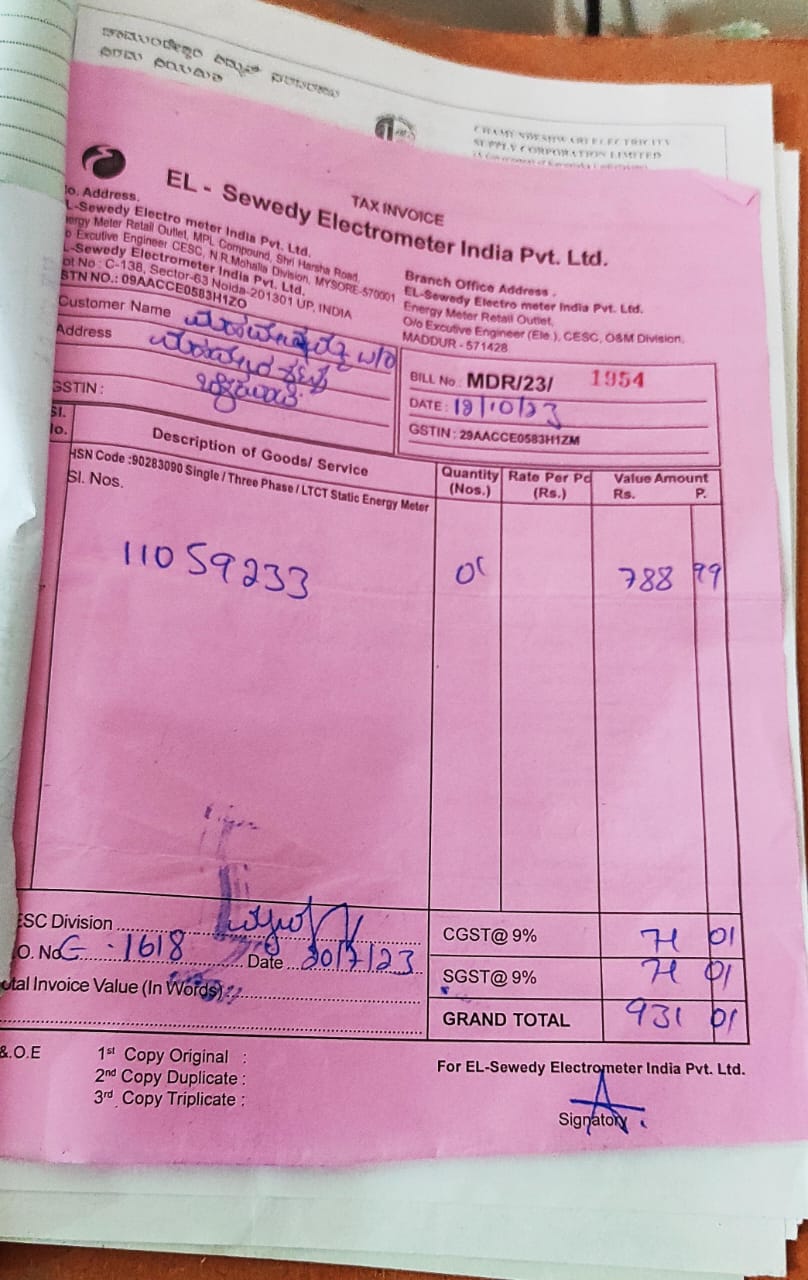 CHAMUNDESHWARI ELECTRICITY
SUPPLY CORPORATION LIMITED
TAX INVOICE
EL - Sewedy Electrometer India Pvt. Ltd.
o. Address.
L-Sewedy Electro meter India Pvt. Ltd.
ergy Meter Retail Outlet, MPL Compound, Shri Harsha Road,
o Excutive Engineer CESC, N.R.Mohalla Division, MYSORE-570001
-Sewedy Electrometer India Pvt. Ltd.
ot No : C-138, Sector-63 Noida-201301 UP, INDIA
STN NO.: 09AACCE0583H1ZO
Branch Office Address .
EL-Sewedy Electro meter India Pvt. Ltd.
Energy Meter Retail Outlet,
O/o Excutive Engineer (Ele.), CESC, O&M Division,
MADDUR - 571428
Customer Name W/O
Address
GSTIN :
BILL No : MDR/23/ 1954
DATE : 19/10/23
GSTIN : 29AACCE0583H1ZM
Sl. No. Description of Goods/ Service Quantity (Nos.) Rate Per Pc (Rs.) Value Amount Rs. P.
HSN Code :90283090 Single / Three Phase / LTCT Static Energy Meter
Sl. Nos.
11059233 01 788 99
ESC Division
CGST@ 9% 71 01
O. No G - 1618 Date 30/7/23
SGST@ 9% 71 01
otal Invoice Value (In Words) :
GRAND TOTAL 931 01
&.O.E
1st Copy Original :
2nd Copy Duplicate :
3rd Copy Triplicate :
For EL-Sewedy Electrometer India Pvt. Ltd.
Signatory